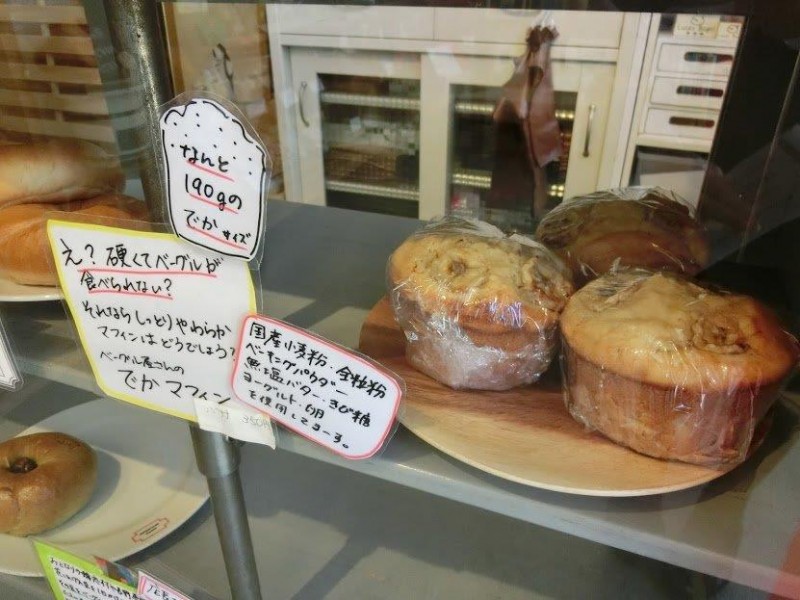 なんと
190gの
でかサイズ
え？硬くてベーグルが
食べられない？
それならしっとりやわらか
マフィンはどうでしょう？
ベーグル屋さんの
でかマフィン
国産小麦粉・全粒粉
ベーキングパウダー
無塩バター・きび糖
ヨーグルト・卵
を使用してます。